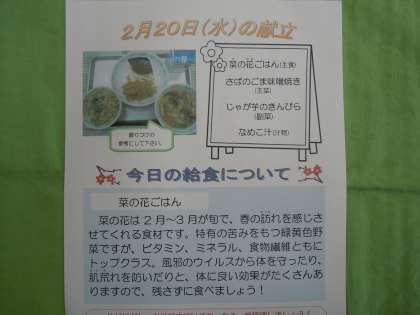 2月20日(水)の献立
菜の花ごはん(主食)
さばのごま味噌焼き
(主菜)
じゃが芋のきんぴら
(副菜)
なめこ汁(汁物)
盛りつけの
参考にして下さい。
今日の給食について
菜の花ごはん
菜の花は2月～3月が旬で、春の訪れを感じさ
せてくれる食材です。特有の苦みをもつ緑黄色野
菜ですが、ビタミン、ミネラル、食物繊維ともに
トップクラス。風邪のウイルスから体を守ったり、
肌荒れを防いだりと、体に良い効果がたくさんあ
りますので、残さずに食べましょう！